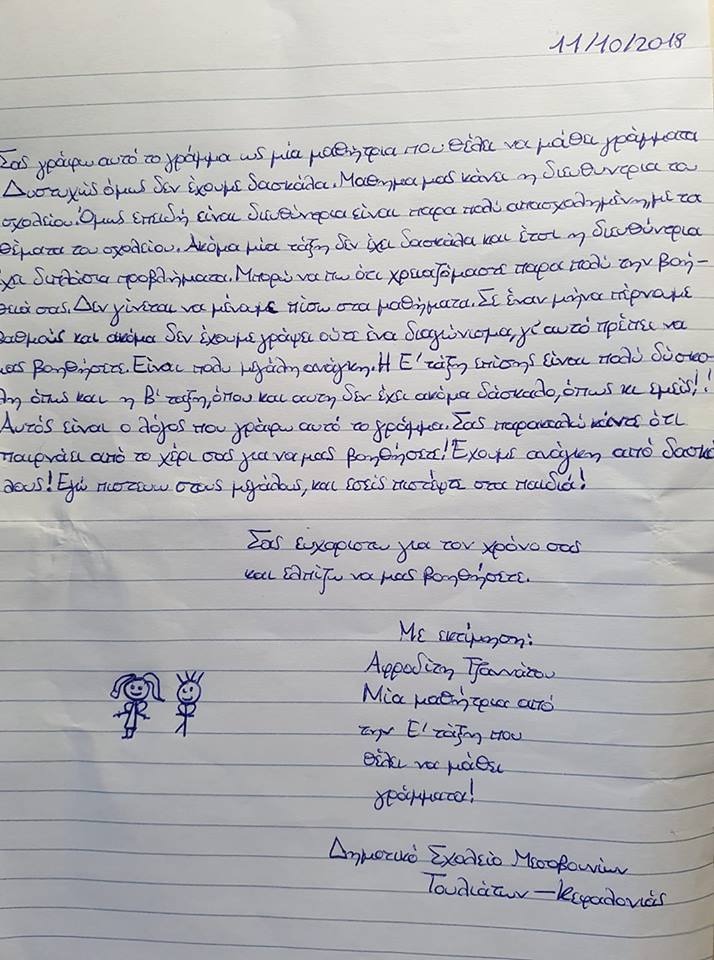 11/10/2018
Σας γράφω αυτό το γράμμα ως μία μαθήτρια που θέλει να μάθει γράμματα
Δυστυχώς όμως δεν έχουμε δασκάλα. Μαθημα μας κάνει η διευθυνερια του
σχολείου. Όμως επειδή είναι διευθύνερια είναι παρα πολύ απασχολημένη, με τα
θέματα του σχολείου. Ακόμα μία τάξη δεν έχει δασκάλα και έτσι η διευθύνερια
έχει διπλάσια προβλήματα. Μπορώ να πω ότι χρειαζόμαστε παρα πολύ την βοή-
θειά σας. Δεν γίνεται να μέναμε πίσω στα μαθήματα. Σε έναν μήνα πέρναμε
βαθμούς και ακόμα δεν έχουμε γράψει ούτε ένα διαγώνισμα, γι' αυτό πρέπει να
μας βοηθήσετε. Είναι πολυ μεγάλη ανάγκη. Η Ε' τάξη επίσης είναι πολύ δύσκο-
λη όπως και η Β' ταξη, όπου και αυτη δεν έχει ακόμα δάσκαλο, όπως κι εμείς!!
Αυτός είναι ο λόγος που γράφω αυτό το γράμμα. Σας παρακαλώ κάντε ότι
παιρνάει από το χέρι σας για να μας βοηθήσετε! Έχουμε ανάγκη από δασκά
λους! Εγώ πιστευω στους μεγάλους, και εσείς πιστέψτε στα παιδιά!
Σας ευχαριστω για τον χρόνο σας
και ελπίζω να μας βοηθήσετε.
Με εκτίμηση:
Αφροδίτη Τζαννάτου
Μία μαθήτρια από
την Ε' τάξη που
θέλει να μάθει
γράμματα!
Δημοτικό Σχολείο Μεσοβουνίων
Τουλιάτων - Κεφαλονιάς